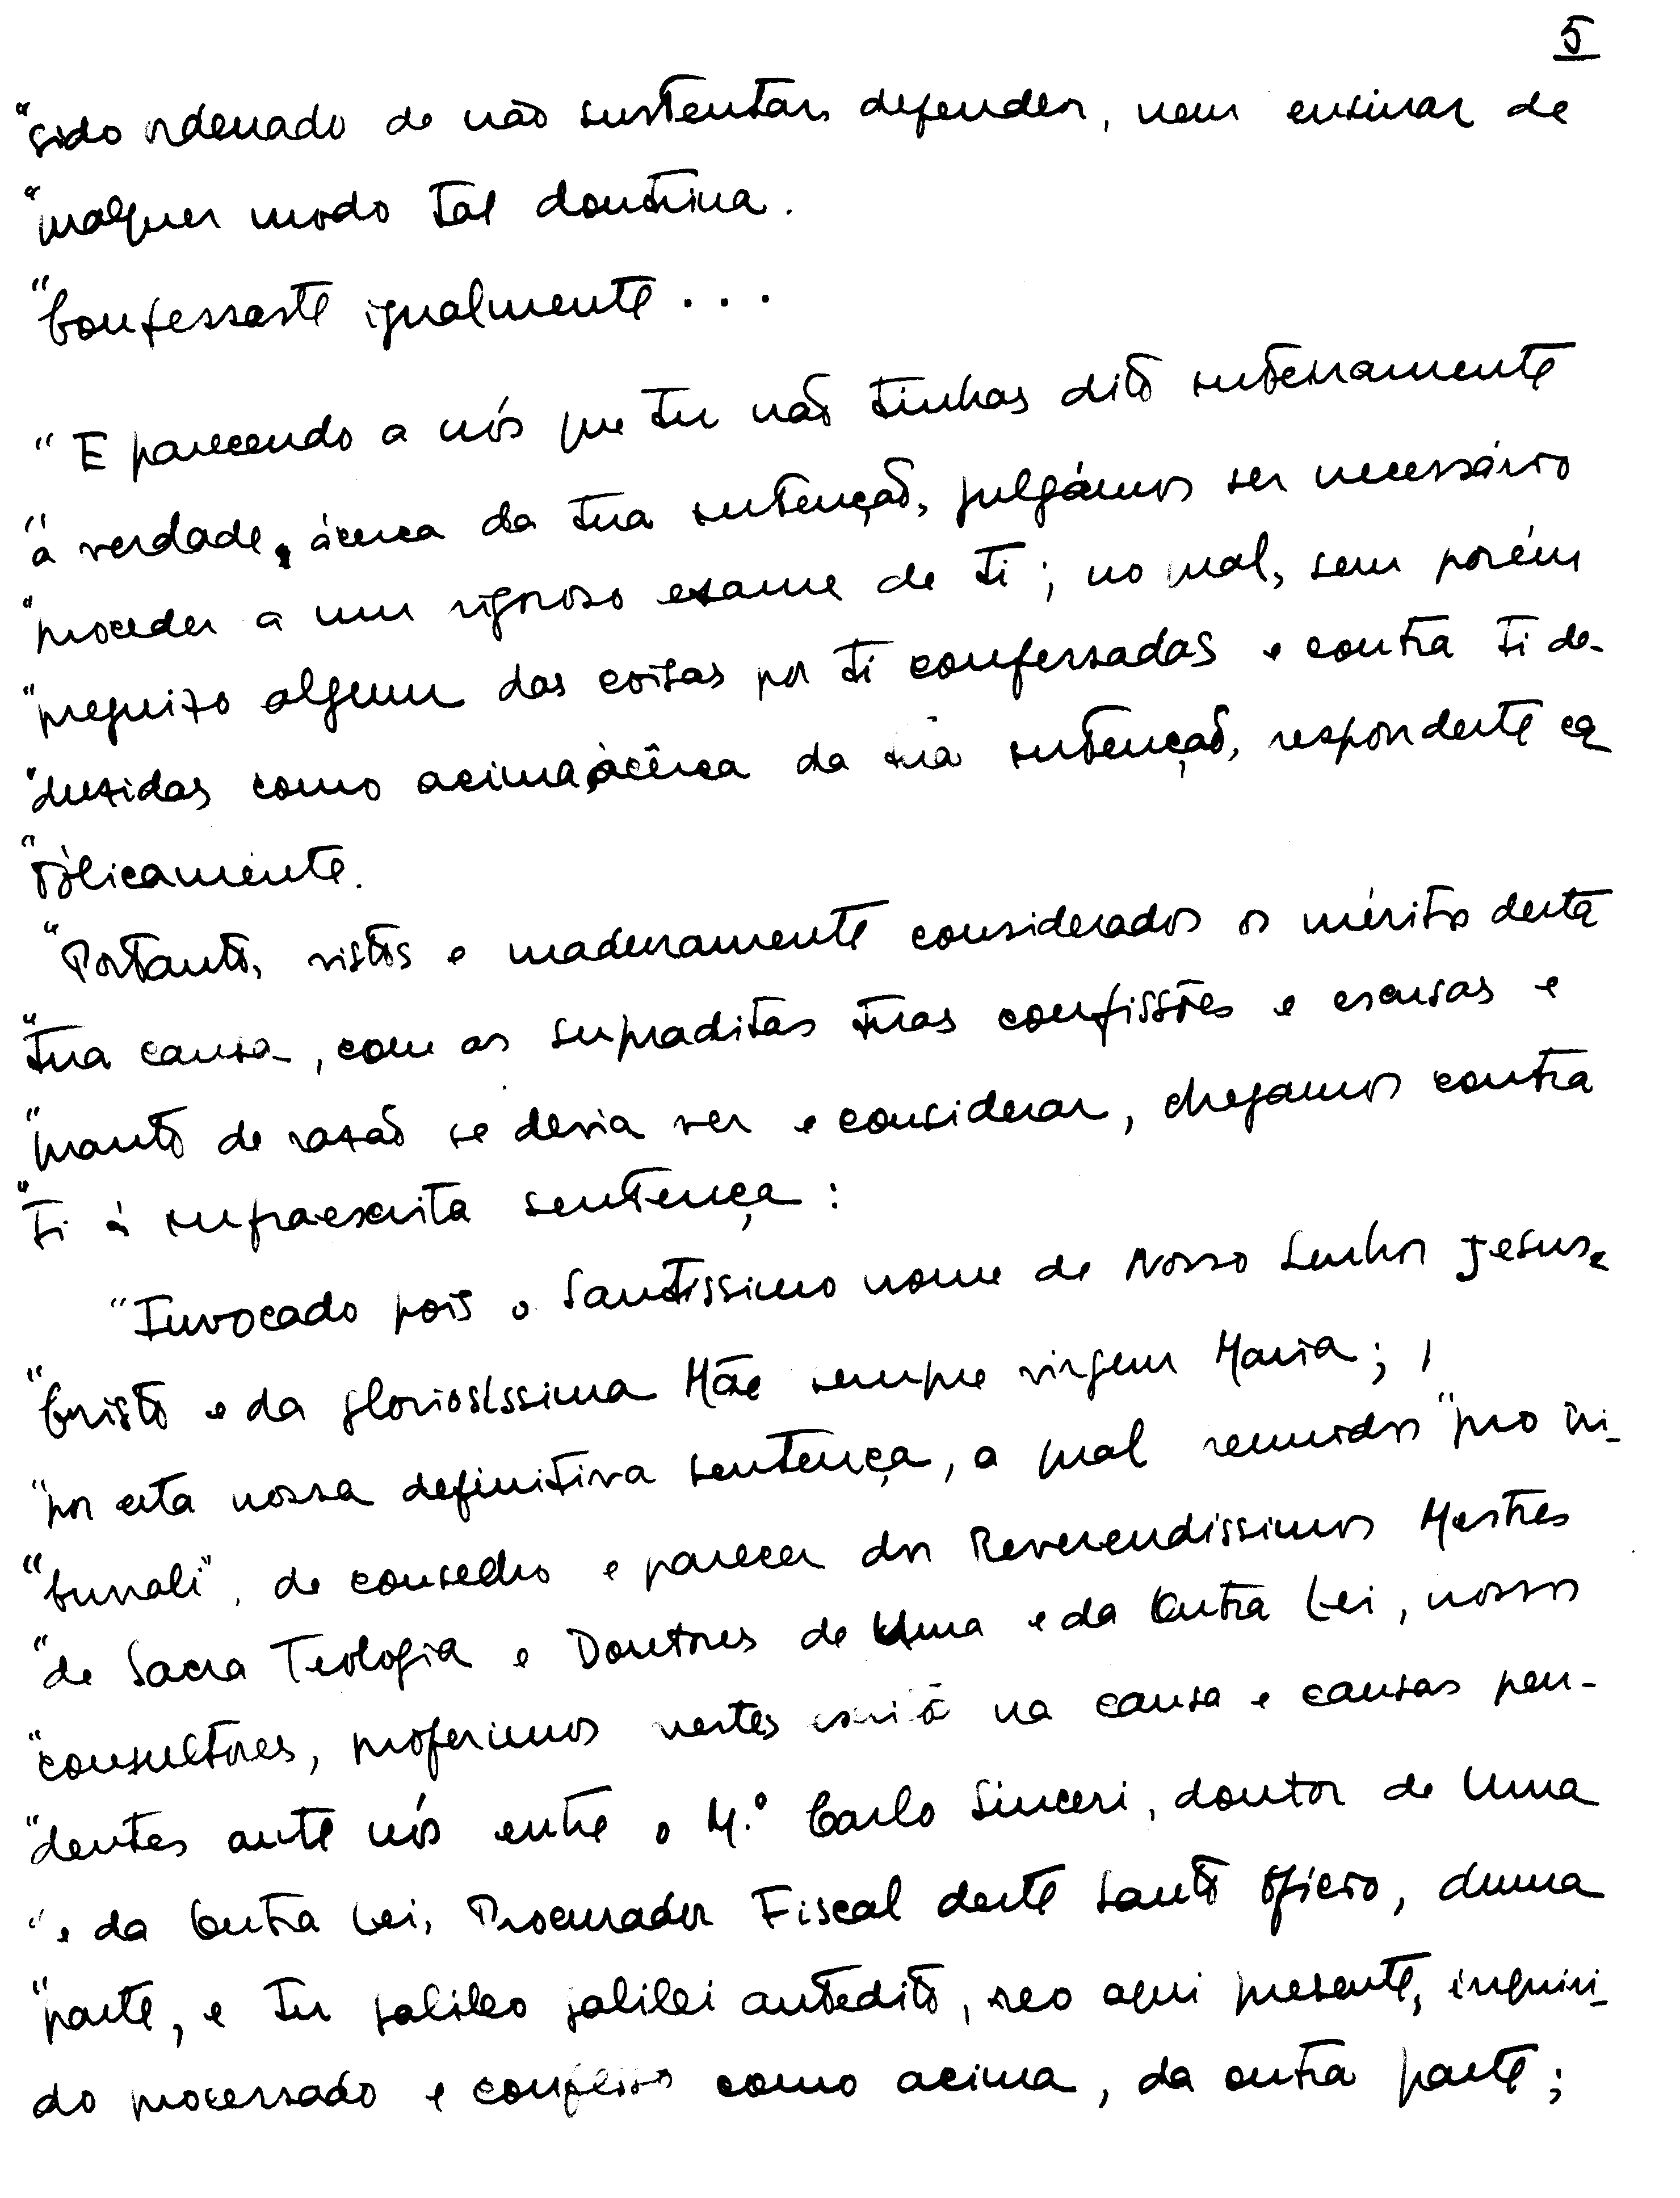 5
"sido ordenado de não sustentar, defender, nem ensinar de
"qualquer modo tal doutrina.
"Confessaste igualmente...
"E parecendo a nós que tu não tinhas dito inteiramente
"a verdade, àcerca da tua intenção, julgámos ser necessário
"proceder a um rigoroso exame de ti; no qual, sem porém
"prejuizo algum das coisas por ti confessadas e contra ti de-
"duzidas como acima, àcêrca da tua intenção, respondeste ca
"tòlicamente.
"Portanto, vistos e maduramente considerados os méritos desta
"tua causa, com as supraditas tuas confissões e escusas e
"quanto de razão se devia ver e considerar, chegamos contra
"ti à infraescrita sentença:
"Invocado pois o Santissimo nome de Nosso Senhor Jesus-
"Cristo e da gloriosissima Mãe sempre virgem Maria; ,
"por esta nossa definitiva sentença, a qual reunidos "pro tri-
"bunali", de conselho e parecer dos Reverendissimos Mestres
"de Sacra Teologia e Doutores de Uma e da Outra Lei, nossos
"consultores, proferimos nestes na causa e causas pen-
"dentes ante nós entre o M.º Carlo Sinceri, doutor de Uma
"e da Outra Lei, Procurador Fiscal deste Santo Oficio, duma
"parte, e tu Galileo Galilei antedito, reo aqui presente, inquiri-
do processado e confesso como acima, da outra parte;